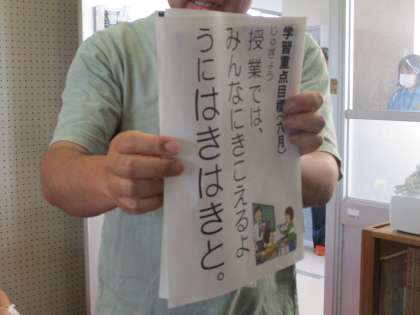 学習重点目標(六月)
じゅぎょう
授業では、
みんなにきこえるよ
うにはきはきと。